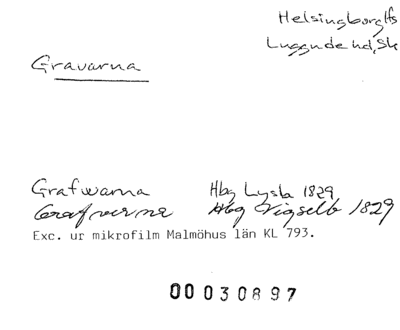 Helsingborg lfs
Luggude hd, Sk
Gravarna
Grafwarna Hbg Lysb 1829
Grafverne Hbg Vigselb 1829
Exc. ur mikrofilm Malmöhus län KL 793.
00030897